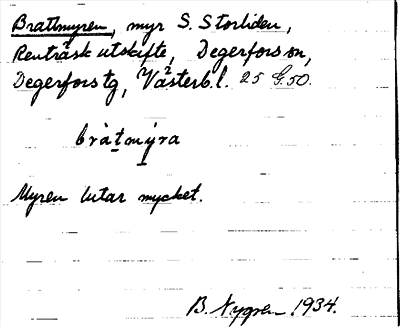 Brattmyren, myr S. Storliden,
Renträsk utskifte, Degerfors sn,
Degerfors tg, Västerb. l. 25 G. 50.
bràtmýra
Myren lutar mycket.
B. Nygren 1934.